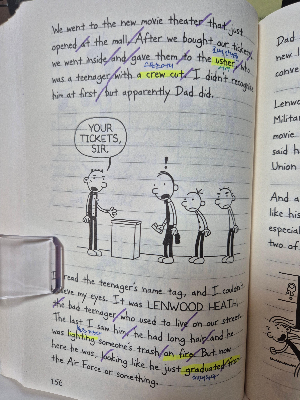 We went to the new movie theater that just
opened at the mall. After we bought our tickets,
we went inside and gave them to the usher who
was a teenager with a crew cut. I didn't recognize
him at first, but apparently Dad did.
YOUR
TICKETS,
SIR.
!
I read the teenager's name tag, and I couldn't
believe my eyes. It was LENWOOD HEATH,
the bad teenager who used to live on our street.
The last I saw him, he had long hair and he
was lighting someone's trash on fire. But now
here he was, looking like he just graduated from
the Air Force or something.
156
Dad
new
conve
Lenwo
Milita
said h
Union
And a
like his
especial
two of